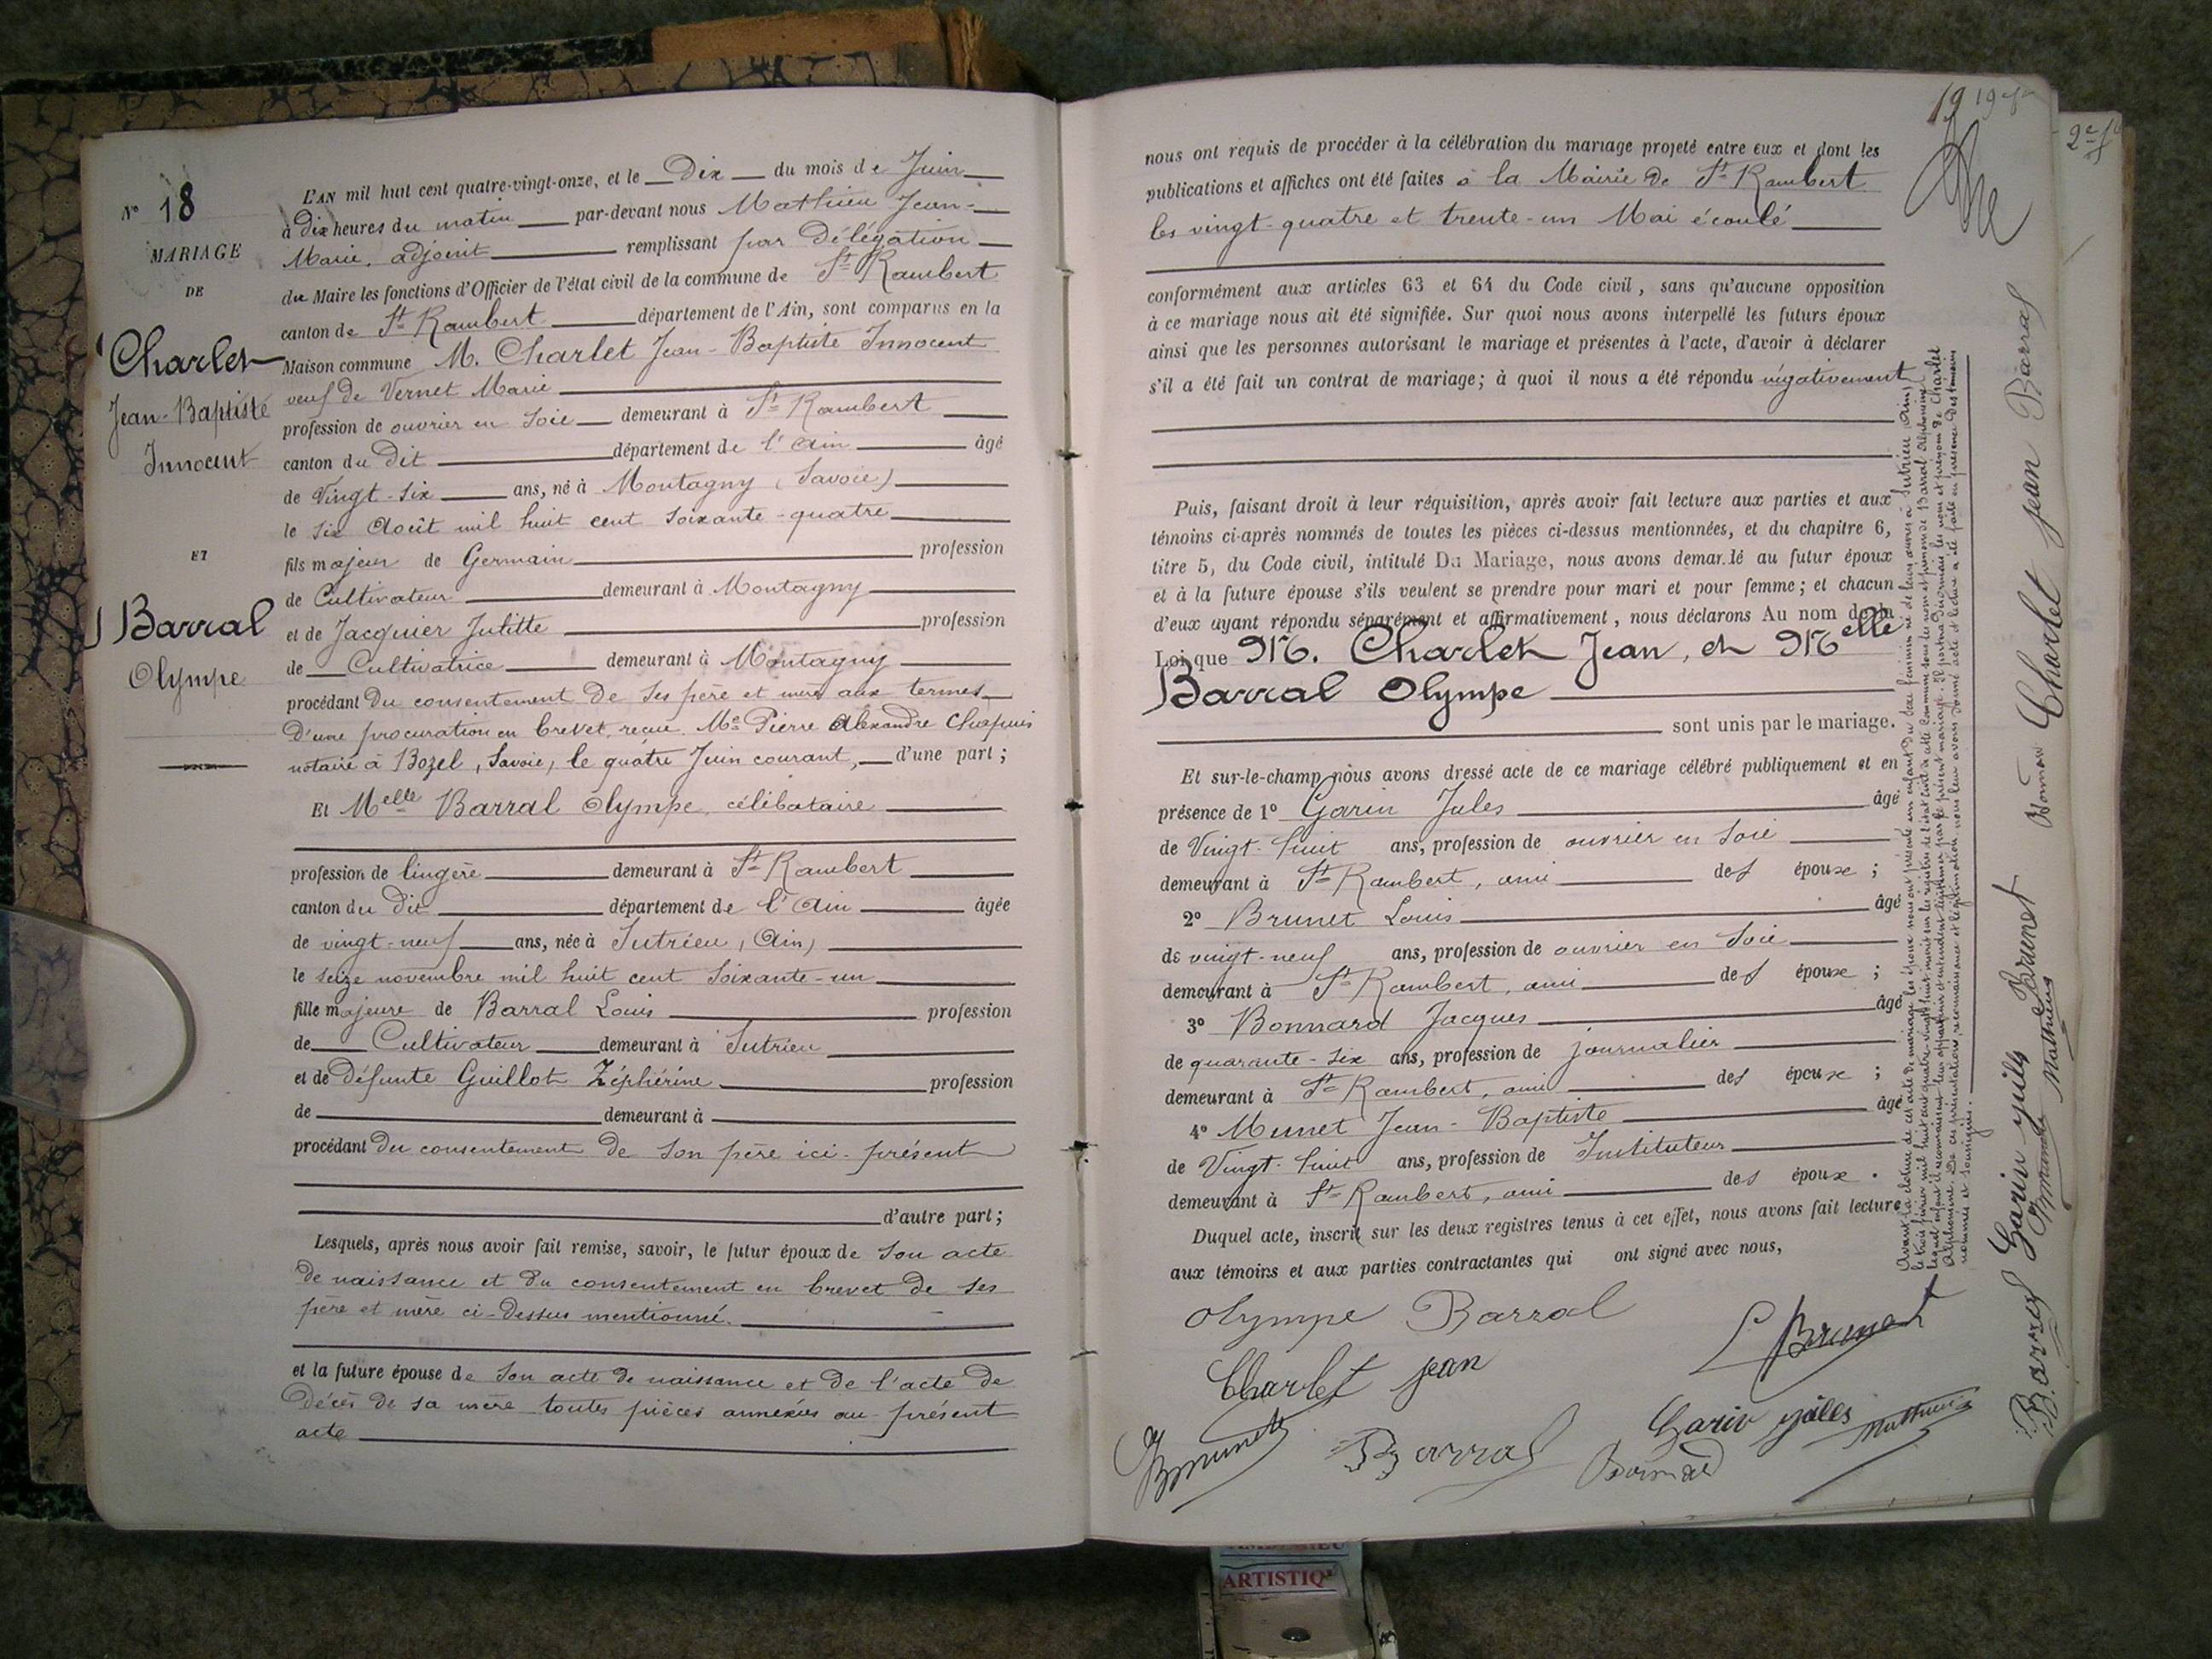 N° 18
MARIAGE
DE
Charlet
Jean-Baptiste
Innocent
ET
Barral
Olympe
L'AN mil huit cent quatre-vingt-onze, et le Dix du mois de Juin
à Dix heures du matin par-devant nous Mathieu Jean-
Marie, adjoint remplissant par Délégation
du Maire les fonctions d'Officier de l'état civil de la commune de St Rambert
canton de St Rambert département de l'Ain, sont comparus en la
Maison commune M. Charlet Jean-Baptiste Innocent
veuf de Vernet Marie
profession de ouvrier en Soie demeurant à St Rambert
canton du Dit département de l'Ain âgé
de Vingt-six ans, né à Montagny (Savoie)
le six Août mil huit cent soixante-quatre
fils majeur de Germain profession
de Cultivateur demeurant à Montagny
et de Jacquier Julitte profession
de Cultivatrice demeurant à Montagny
procédant du consentement de ses père et mère aux termes
D'une procuration en brevet, reçue Me Pierre Alexandre Chapuis
notaire à Bozel, Savoie, le quatre Juin courant, d'une part;
Et Melle Barral Olympe, célibataire
profession de lingère demeurant à St Rambert
canton du Dit département de l'Ain âgée
de vingt-neuf ans, née à Sutrieu, (Ain)
le seize novembre mil huit cent soixante-un
fille majeure de Barral Louis profession
de Cultivateur demeurant à Sutrieu
et de Défunte Guillot Zéphérine profession
de demeurant à
procédant du consentement de son père ici-présent
d'autre part;
Lesquels, après nous avoir fait remise, savoir, le futur époux de son acte
de naissance et du consentement en brevet de ses
père et mère ci-dessus mentionné.
et la future épouse de son acte de naissance et de l'acte de
Décès de sa mère toutes pièces annexées au présent
acte
19 19e
2e
nous ont requis de procéder à la célébration du mariage projeté entre eux et dont les
publications et affiches ont été faites à la Mairie de St Rambert
les vingt-quatre et trente-un Mai écoulé
conformément aux articles 63 et 64 du Code civil, sans qu'aucune opposition
à ce mariage nous ait été signifiée. Sur quoi nous avons interpellé les futurs époux
ainsi que les personnes autorisant le mariage et présentes à l'acte, d'avoir à déclarer
s'il a été fait un contrat de mariage; à quoi il nous a été répondu négativement
Puis, faisant droit à leur réquisition, après avoir fait lecture aux parties et aux
témoins ci-après nommés de toutes les pièces ci-dessus mentionnées, et du chapitre 6,
titre 5, du Code civil, intitulé Du Mariage, nous avons demandé au futur époux
et à la future épouse s'ils veulent se prendre pour mari et pour femme; et chacun
d'eux ayant répondu séparément et affirmativement, nous déclarons Au nom de la
Loi que M. Charlet Jean, et Melle
Barral Olympe
sont unis par le mariage.
Et sur-le-champ nous avons dressé acte de ce mariage célébré publiquement et en
présence de 1° Garin Jules âgé
de Vingt-huit ans, profession de ouvrier en Soie
demeurant à St Rambert, ami des époux;
2° Brunet Louis âgé
de vingt-neuf ans, profession de ouvrier en Soie
demeurant à St Rambert, ami des époux;
3° Bonnard Jacques âgé
de quarante-six ans, profession de journalier
demeurant à St Rambert, ami des époux;
4° Munet Jean-Baptiste âgé
de Vingt-huit ans, profession de Instituteur
demeurant à St Rambert, ami des époux.
Duquel acte, inscrit sur les deux registres tenus à cet effet, nous avons fait lecture
aux témoins et aux parties contractantes qui ont signé avec nous,
Olympe Barral
L Brunet
Charlet jean
Garin jules
Mathieu
Barral
Bonnard
Avant la clôture de cet acte de mariage les époux nous ont présenté un enfant du sexe féminin né de leurs œuvres à Sutrieu (Ain)
le trois février mil huit cent quatre-vingt-huit inscrit sur les registres de l'état civil de cette Commune sous les nom et prénom de Barral Alphonsine
lequel enfant ils reconnaissent leur appartenir et entendent légitimer par le présent mariage. Il portera désormais les nom et prénom de Charlet
Alphonsine. De ces présentation, reconnaissance et légitimation nous leur avons donné acte et lecture a été faite en présence des témoins
nommés et soussignés.
Barral Garin jules Brunet Bonnard Charlet jean Barral
Mathieu
ARTISTIQ